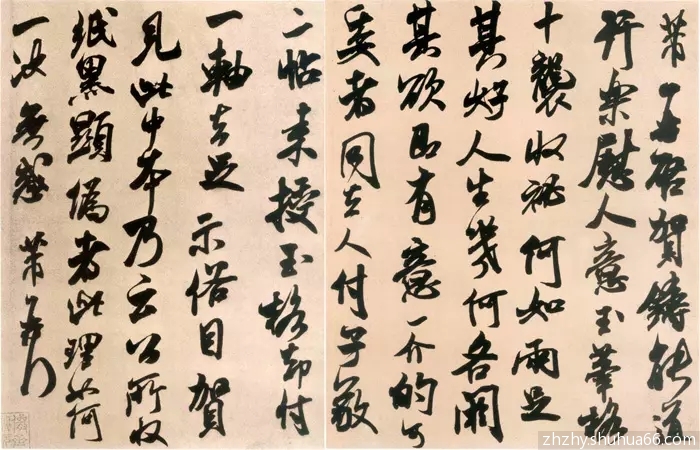 芾頓首啓賀鑄能道
行樂慰人意玉華格
十襲收秘何如兩足
其好人生幾何各闕
其欲即有意一介的可
委者同去人付草聖
二帖來授玉格却付
一軸去足示俗目賀
見此中本乃云公所收
紙黑顯偽者此理如何
一決無惑芾頓首
zhzhy.shuhua66.com